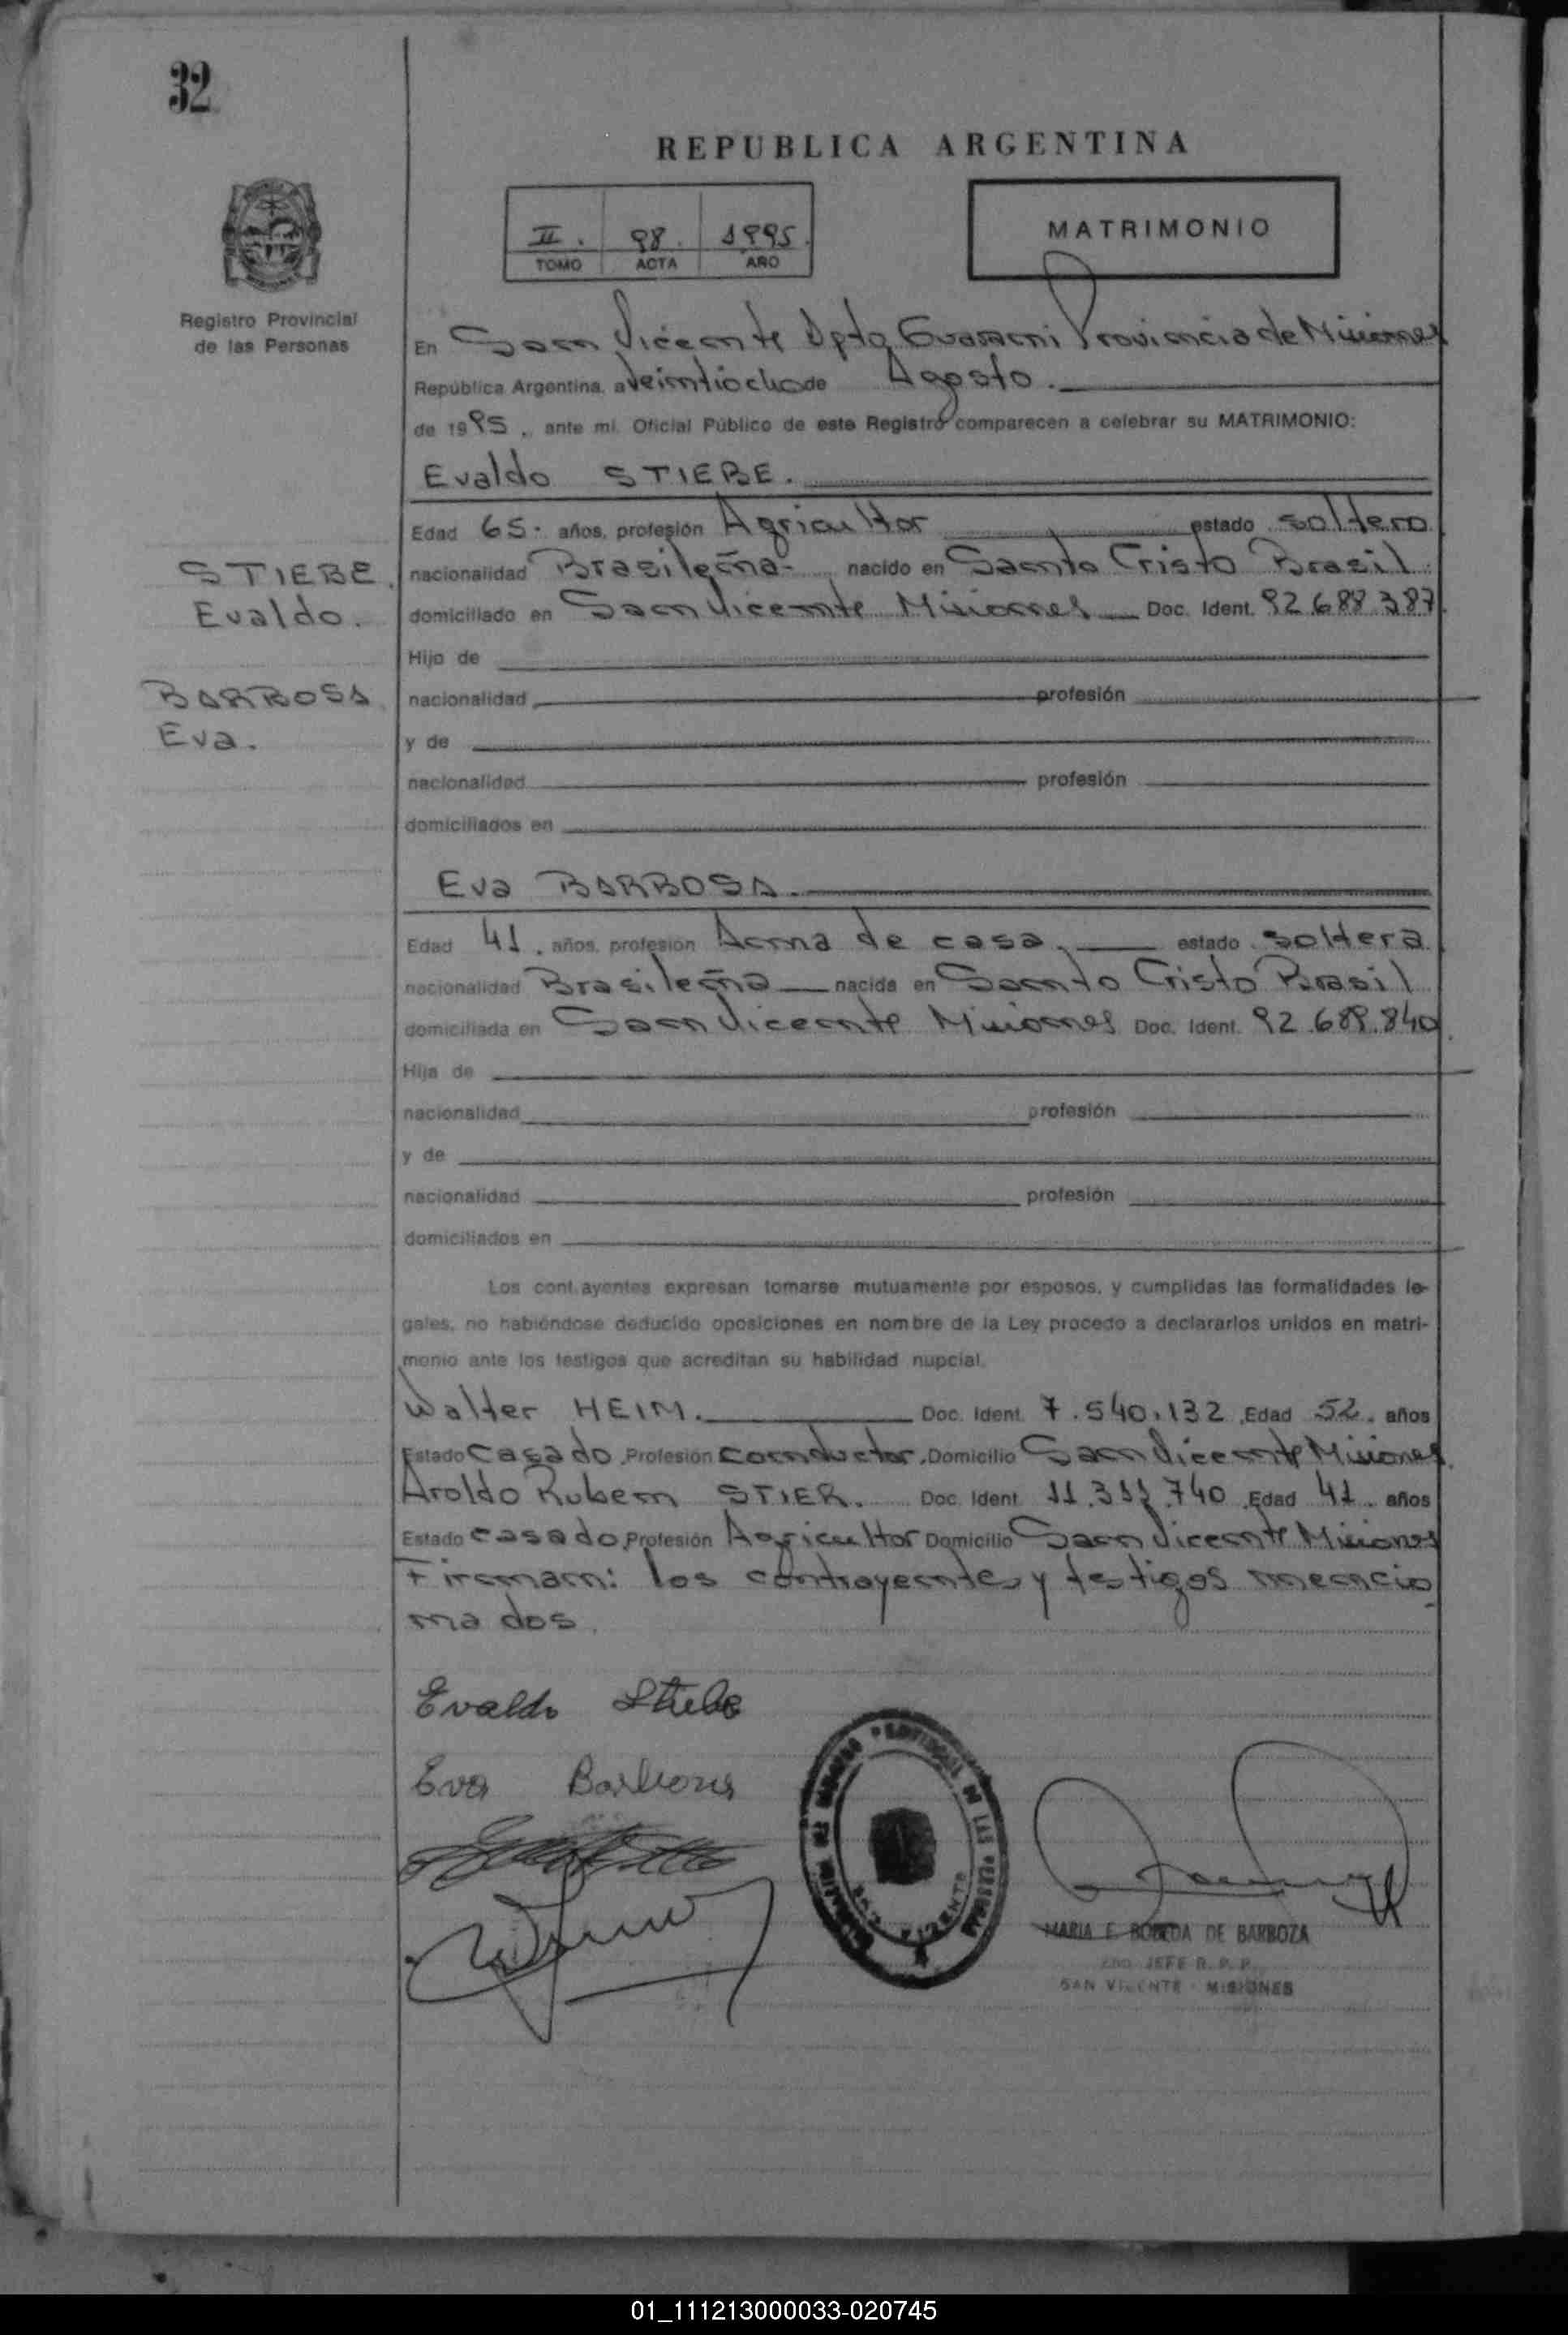 32
REPUBLICA ARGENTINA
II. 98. 1995.
TOMO ACTA AÑO
MATRIMONIO
Registro Provincial
de las Personas
En San Vicente Dpto Guarani Provincia de Misiones
República Argentina, a Veintiocho de Agosto.
de 1995, ante mi, Oficial Público de este Registro comparecen a celebrar su MATRIMONIO:
Evaldo STIEBE.
Edad 65- años, profesión Agricultor estado soltero
STIEBE.
Evaldo.
nacionalidad Brasileña- nacido en Santo Cristo Brasil
domiciliado en San Vicente Misiones Doc. Ident. 92.688.387
Hijo de
BARBOSA
Eva.
nacionalidad profesión
y de
nacionalidad profesión
domiciliados en
Eva BARBOSA.
Edad 41. años, profesión Ama de casa. estado soltera
nacionalidad Brasileña nacida en Santo Cristo Brasil
domiciliada en San Vicente Misiones Doc. Ident. 92.689.840
Hija de
nacionalidad profesión
y de
nacionalidad profesión
domiciliados en
Los cont ayentes expresan tomarse mutuamente por esposos, y cumplidas las formalidades le-
gales, no habiéndose deducido oposiciones en nombre de la Ley procedo a declararlos unidos en matri-
monio ante los testigos que acreditan su habilidad nupcial.
Walter HEIM. Doc. Ident. 7.540.132 Edad 52. años
Estado casado Profesión conductor. Domicilio San Vicente Misiones
Aroldo Ruben STIER. Doc. Ident 11.311.740 Edad 41. años
Estado casado Profesión Agricultor Domicilio San Vicente Misiones
Firman: los contrayentes y testigos mencio
nados.
Evaldo Stiebe
Eva Barbosa
MARIA E. BOBEDA DE BARBOZA
JEFE R. P. P.
SAN VICENTE - MISIONES
01_111213000033-020745